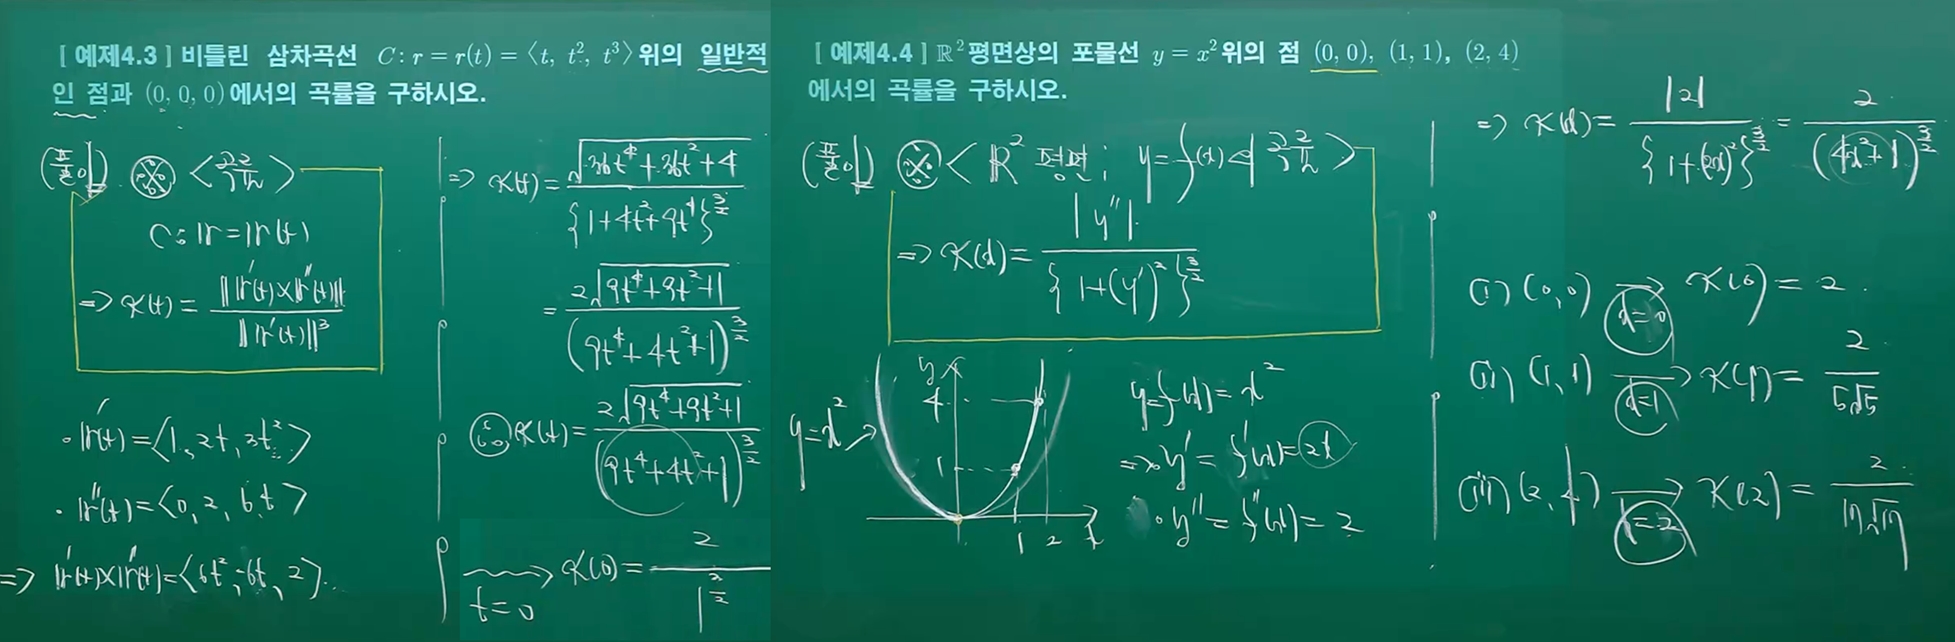 [ 예제4.3 ] 비틀린 삼차곡선 C : r = r(t) = ⟨t, t², t³⟩위의 일반적
인 점과 (0, 0, 0)에서의 곡률을 구하시오.
(풀이) ※ <곡률>
C : r = r(t)
⇒ κ(t) = ||r'(t)×r''(t)|| / ||r'(t)||³
· r'(t) = ⟨1, 2t, 3t²⟩
· r''(t) = ⟨0, 2, 6t⟩
⇒ r'(t)×r''(t) = ⟨6t², -6t, 2⟩.
⇒ κ(t) = √(36t⁴+36t²+4) / {1+4t²+9t⁴}^(3/2)
= 2√(9t⁴+9t²+1) / (9t⁴+4t²+1)^(3/2)
∴ κ(t) = 2√(9t⁴+9t²+1) / (9t⁴+4t²+1)^(3/2)
t=0 → κ(0) = 2 / 1^(3/2)
[ 예제4.4 ] ℝ²평면상의 포물선 y = x²위의 점 (0, 0), (1, 1), (2, 4)
에서의 곡률을 구하시오.
(풀이) ※ < ℝ² 평면; y = f(x)의 곡률 >
⇒ κ(x) = |y''| / {1+(y')²}^(3/2)
y
4
1
y=x²
1 2 x
y=f(x)=x²
⇒ · y' = f'(x) = 2x
· y'' = f''(x) = 2
⇒ κ(x) = |2| / {1+(2x)²}^(3/2) = 2 / (4x²+1)^(3/2)
(i) (0,0) x=0 → κ(0) = 2.
(ii) (1,1) x=1 → κ(1) = 2 / 5√5
(iii) (2,4) x=2 → κ(2) = 2 / 17√17